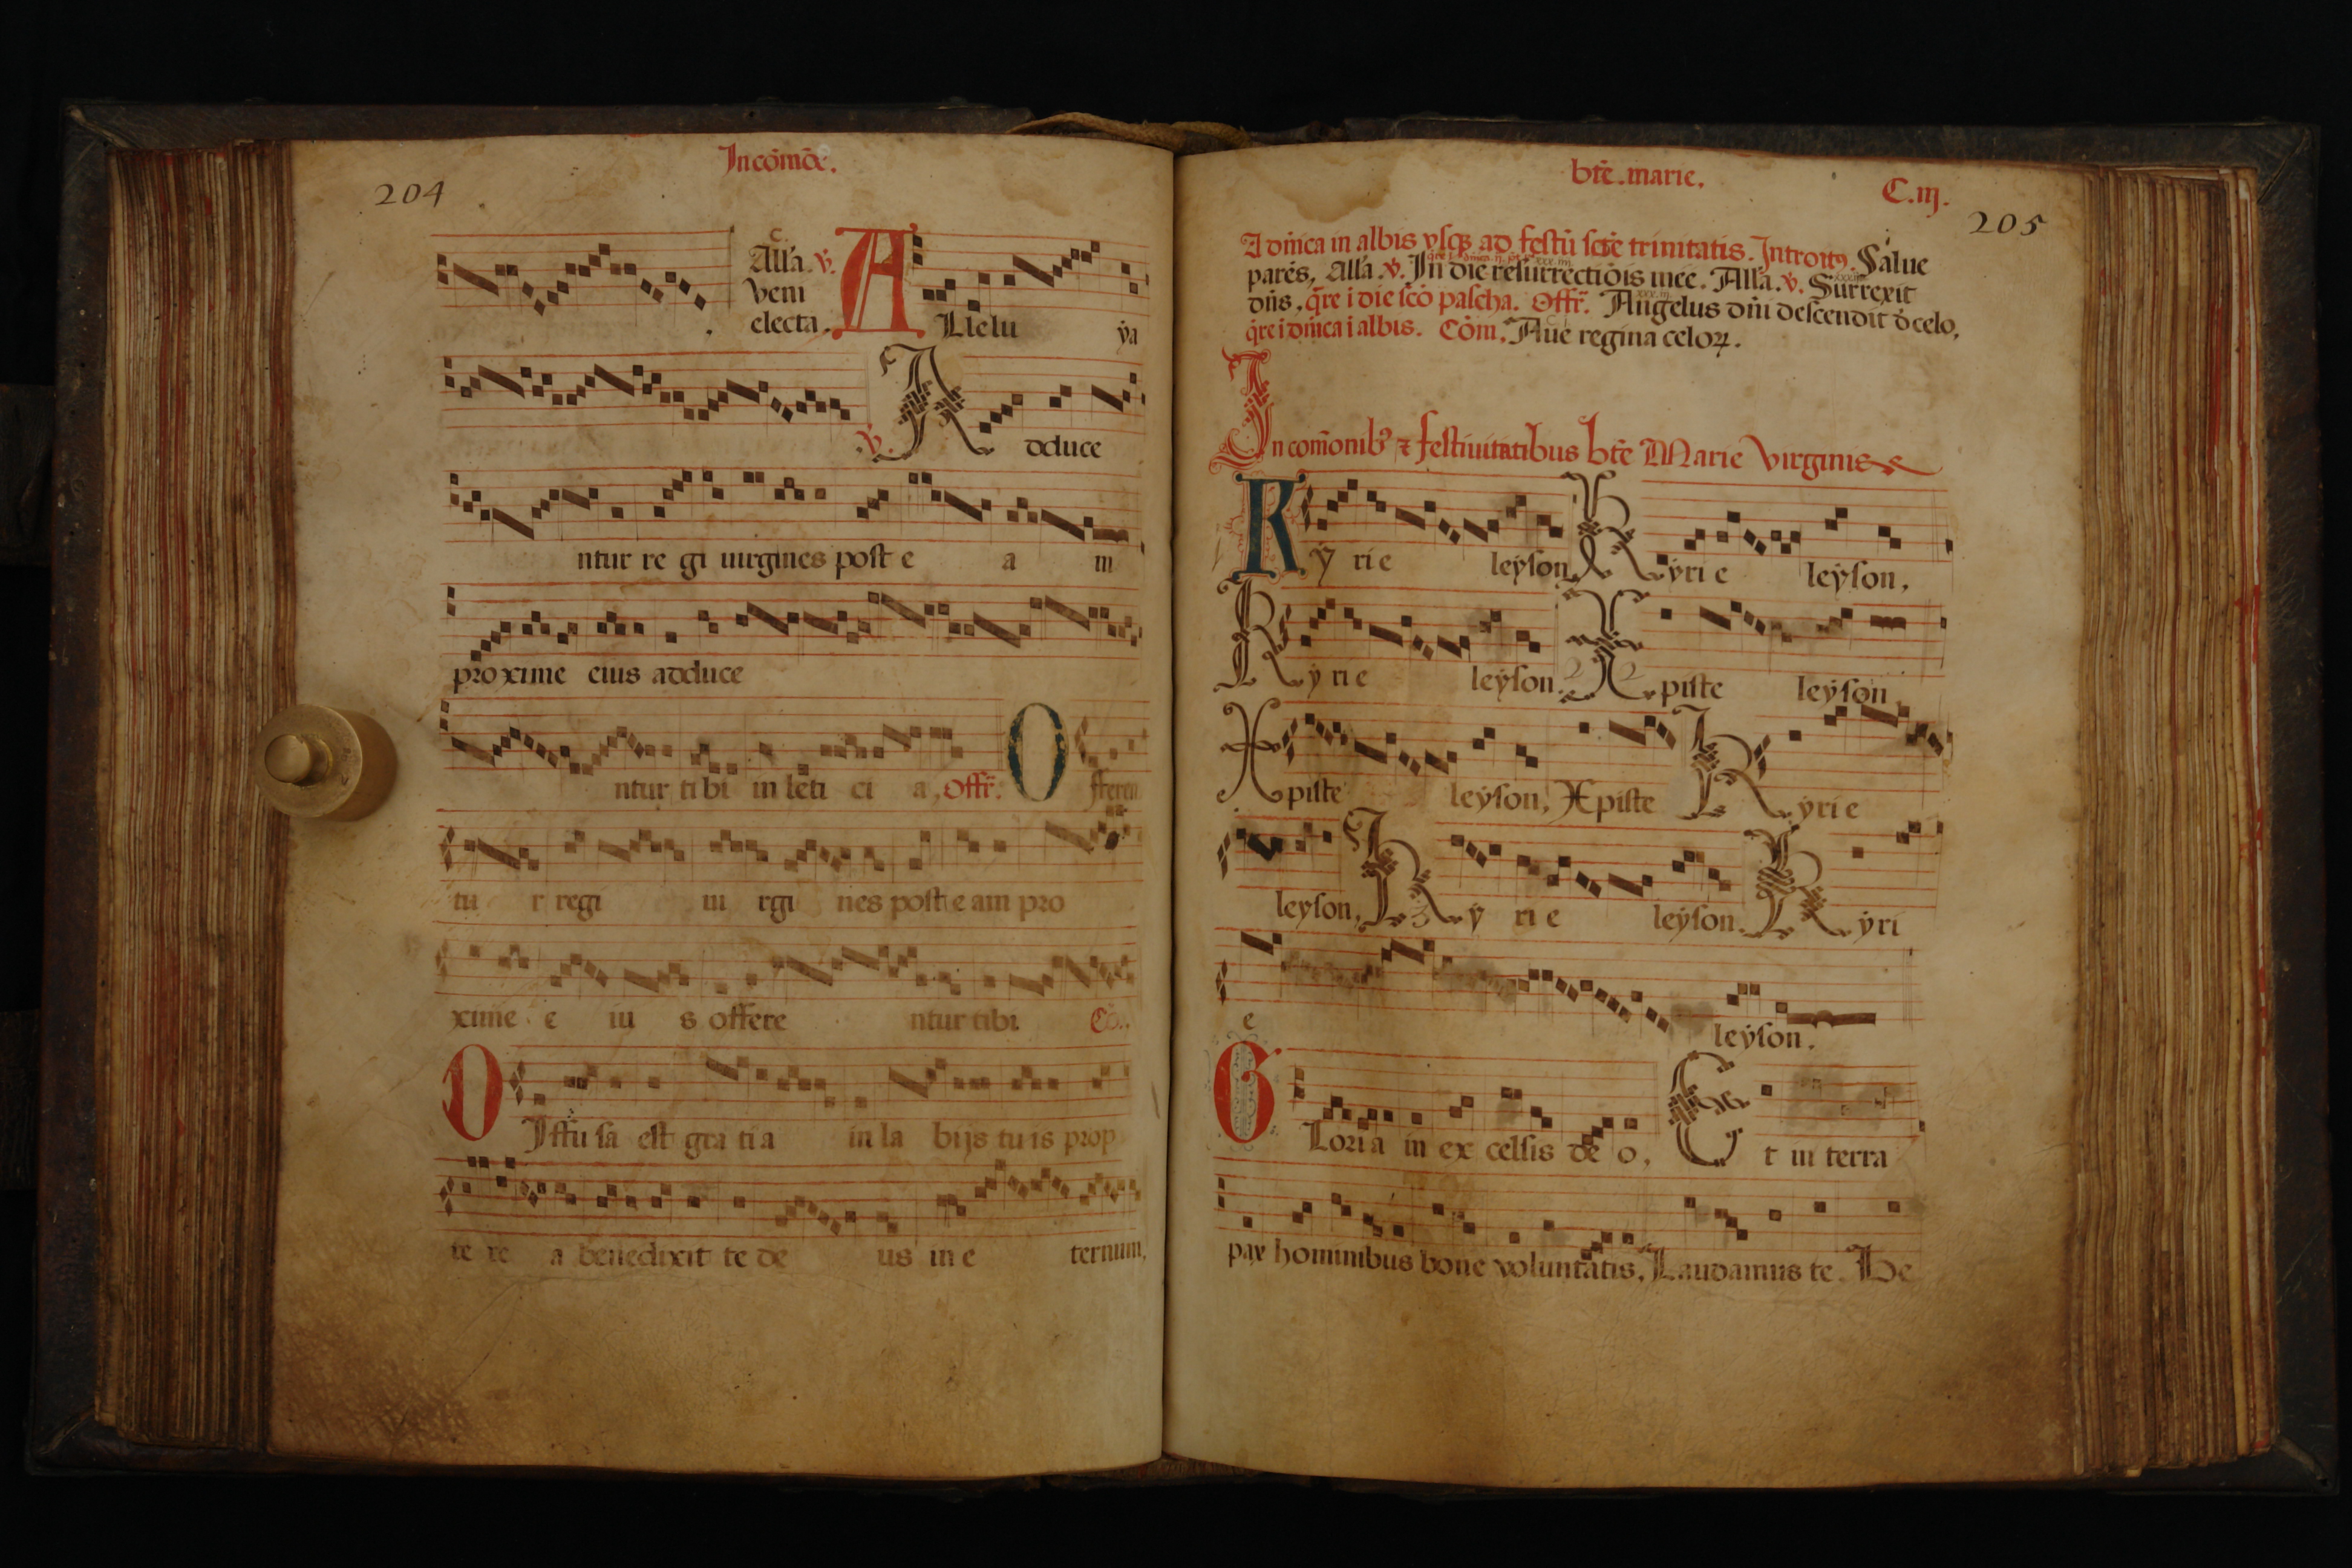 204
In cōmōe.
c.
All'a. v.
veni
electa.
A Llelu ya
v. A dduce
ntur re gi uirgines post e a m
proxime eius adduce
ntur tibi in leti ci a, Offr. O fferen
tu r regi ui rgi nes post e am pro
xime e iu s offere ntur tibi Cō.
D Iffu sa est gra ti a in la bijs tu is prop
te re a benedixit te de us in e ternum.
bt̄e. marie.
C. iij.
205
A dn̄ica in albis vsq3 ad festū sct̄e trinitatis. Introitꝯ. Salue
parēs, All'a. v. In die resurrectiōis mee. All'a. v. Surrexit
dn̄s, q̄re i die scō pascha. Offr̄. Angelus dn̄i descendit d̄ celo,
q̄re i dn̄ica i albis. Cōm. Aue regina celoꝝ.
In com̄onib9 ⁊ festiuitatibus bt̄e Marie virginis
K ẏ rie leẏson, K ẏri e leẏson,
K y rie leẏson. X piste leẏson,
X piste leẏson, Xpiste K ẏrie
leyson, K ẏ ri e leẏson. K ẏri
e leẏson.
G Loria in ex celsis de o, E t in terra
pax hominibus bone voluntatis, Laudamus te. Be